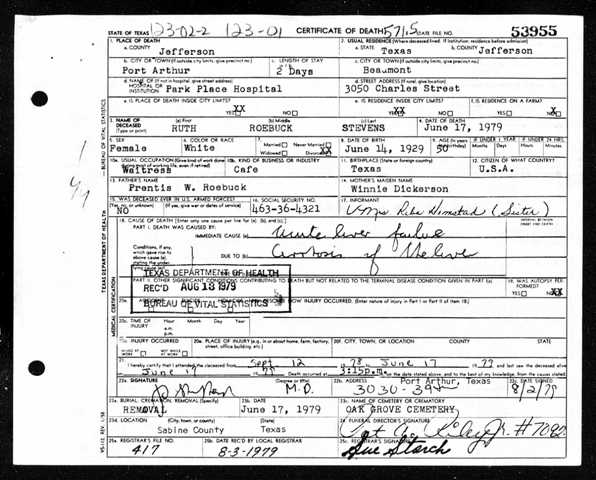 STATE OF TEXAS 123-02-2 123-01 CERTIFICATE OF DEATH 571.5 STATE FILE NO. 53955
1. PLACE OF DEATH 2. USUAL RESIDENCE (Where deceased lived. If institution: residence before admission)
a. COUNTY Jefferson a. STATE Texas b. COUNTY Jefferson
b. CITY OR TOWN (If outside city limits, give precinct no.) c. LENGTH OF STAY c. CITY OR TOWN (If outside city limits, give precinct no.)
Port Arthur 2 Days Beaumont
d. NAME OF (If not in hospital, give street address) HOSPITAL OR INSTITUTION Park Place Hospital d. STREET ADDRESS (If rural, give location) 3050 Charles Street
e. IS PLACE OF DEATH INSIDE CITY LIMITS? YES XX NO e. IS RESIDENCE INSIDE CITY LIMITS? YES XX NO f. IS RESIDENCE ON A FARM? YES NO X
3. NAME OF DECEASED (Type or print) (a) First RUTH (b) Middle ROEBUCK (c) Last STEVENS 4. DATE OF DEATH June 17, 1979
5. SEX Female 6. COLOR OR RACE White 7. Married Never Married Widowed Divorced XX 8. DATE OF BIRTH June 14, 1929 9. AGE 50 IF UNDER 1 YEAR Months Days IF UNDER 24 HRS. Hours Min.
10a. USUAL OCCUPATION Waitress 10b. KIND OF BUSINESS OR INDUSTRY Cafe 11. BIRTHPLACE (State or foreign country) Texas 12. CITIZEN OF WHAT COUNTRY? U.S.A.
13. FATHER'S NAME Prentis W. Roebuck 14. MOTHER'S MAIDEN NAME Winnie Dickerson
15. WAS DECEASED EVER IN U.S. ARMED FORCES? NO 16. SOCIAL SECURITY NO. 463-36-4321 17. INFORMANT (Sister)
18. CAUSE OF DEATH [Enter only one cause per line for (a), (b), and (c).]
PART I. DEATH WAS CAUSED BY: IMMEDIATE CAUSE (a) Acute liver failure
Conditions, if any, which gave rise to above cause DUE TO (b) Cirrhosis of the liver
TEXAS DEPARTMENT OF HEALTH
REC'D AUG 13 1979
BUREAU OF VITAL STATISTICS
PART II. OTHER SIGNIFICANT CONDITIONS CONTRIBUTING TO DEATH BUT NOT RELATED TO THE TERMINAL DISEASE CONDITION GIVEN IN PART I(a) 19. WAS AUTOPSY PERFORMED? YES NO XX
20a. 20b. DESCRIBE HOW INJURY OCCURRED. (Enter nature of injury in Part I or Part II of item 18.)
20c. TIME OF INJURY Hour Month Day Year a.m. p.m.
20d. INJURY OCCURRED WHILE AT WORK NOT WHILE AT WORK 20e. PLACE OF INJURY (e.g. in or about home, farm, factory, street, office building, etc.) 20f. CITY, TOWN, OR LOCATION COUNTY STATE
21. I hereby certify that I attended the deceased from Sept 12 1978 June 17 1979
June 17 1979 Death occurred at 3:15p.m. on the date stated above; and to the best of my knowledge, from the causes stated.
22a. SIGNATURE (Degree or title) M.D. 22b. ADDRESS Port Arthur, Texas 3030-39th 22c. DATE SIGNED 8/2/79
23a. BURIAL, CREMATION, REMOVAL (Specify) REMOVAL 23b. DATE June 17, 1979 23c. NAME OF CEMETERY OR CREMATORY OAK GROVE CEMETERY
23d. LOCATION (City, town, or county) (State) Sabine County Texas 24. FUNERAL DIRECTOR'S SIGNATURE Riley Jr. #7092
25a. REGISTRAR'S FILE NO. 417 25b. DATE REC'D BY LOCAL REGISTRAR 8-3-1979 25c. REGISTRAR'S SIGNATURE Sue Starch
BUREAU OF VITAL STATISTICS
TEXAS DEPARTMENT OF HEALTH
MEDICAL CERTIFICATION